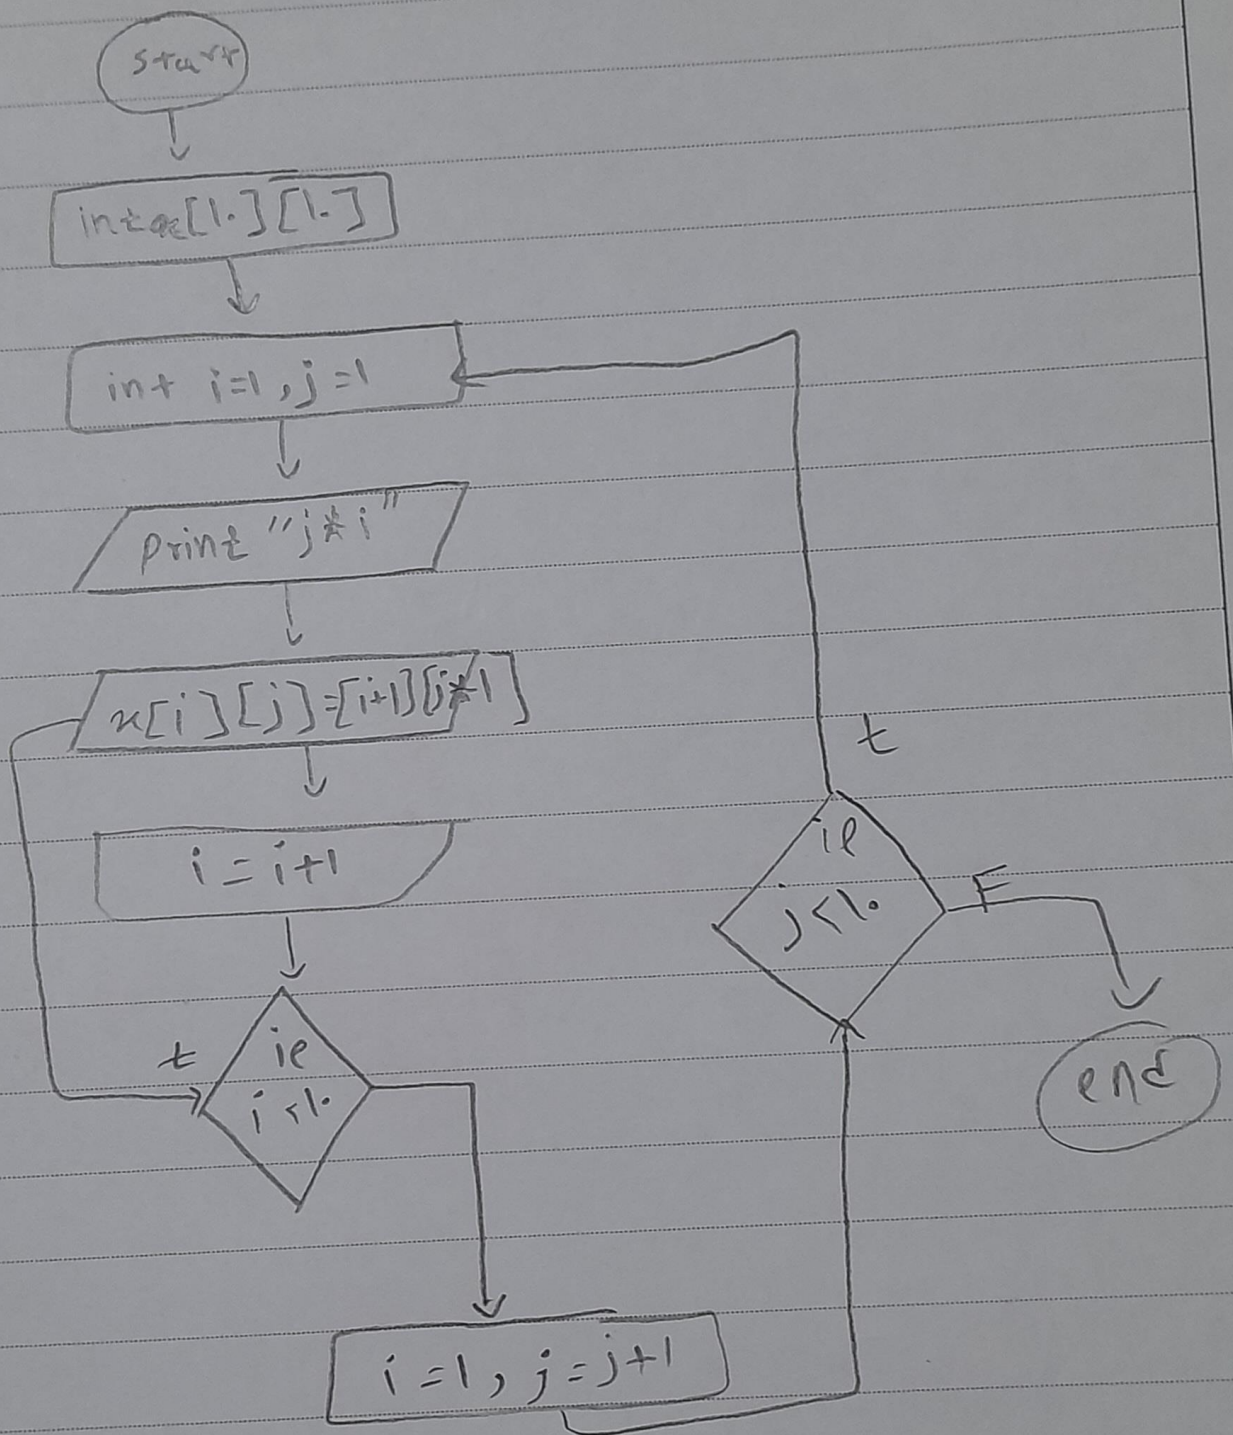 start
int x[1.][1.]
int i=1, j=1
print "j*i"
x[i][j]=[i+1][j*1]
i=i+1
t
ie
i<1.
i=1, j=j+1
t
ie
j<1.
F
end